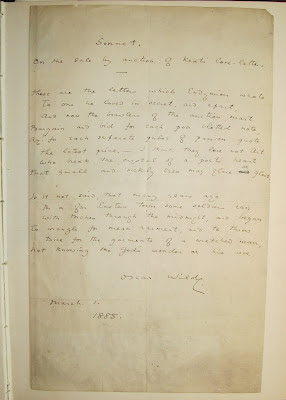 Sonnet.
On the Sale by Auction of Keats' Love-Letters.
These are the letters which Endymion wrote
To one he loved in secret, and apart
And now the brawlers of the auction mart
Bargain and bid for each poor blotted note,
Ay! for each separate pulse of passion quote
The latest price. — I think they love not Art
Who break the crystal of a poet's heart
That small and sickly eyes may glare gloat.
Is it not said that many years ago
In a far Eastern town some soldiers ran
With torches through the midnight, and began
To wrangle for mean raiment, and to throw
Dice for the garments of a wretched man,
Not knowing the God's wonder or his woe.
Oscar Wilde.
March 1.
1885.